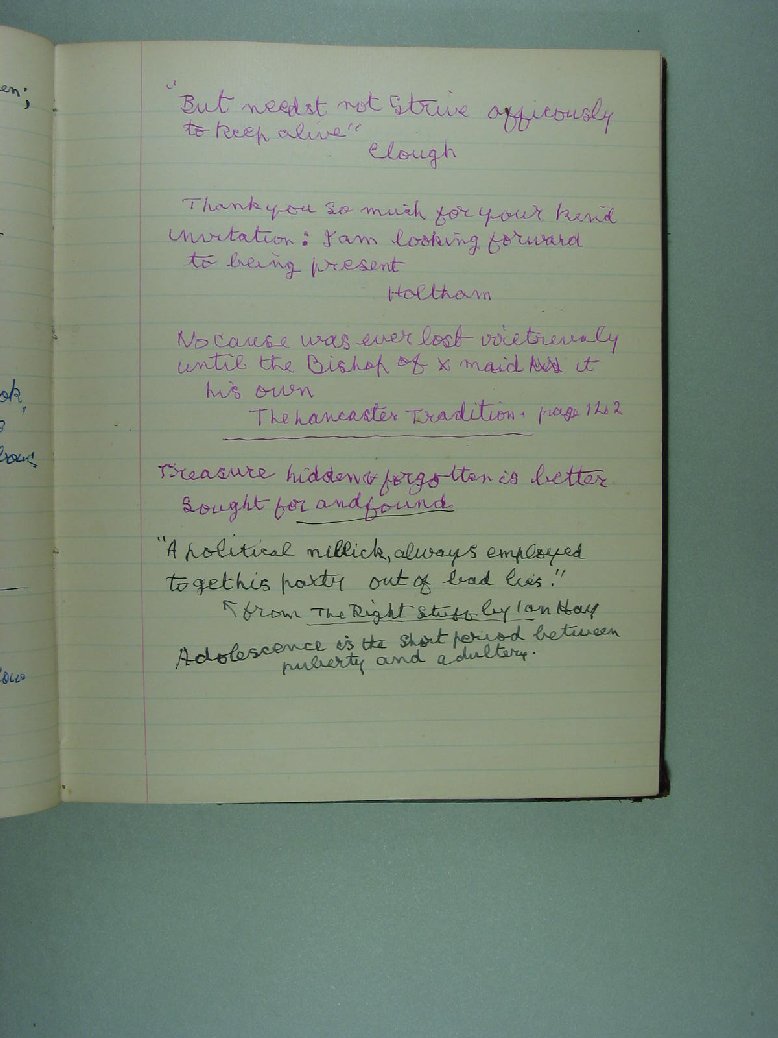 en';
ok,
"But needst not Strive officously
to keep alive"
Clough
Thank you so much for your kind
invitation: I am looking forward
to being present
Haltham
No cause was ever lost irretrievably
until the Bishop of X maid it
his own
The Lancaster Tradition. page 122
Treasure hidden & forgotten is better
Sought for and found
"A political nillick, always employed
to get his party out of bad lies."
from The Right Stuff by Ian Hay
Adolescence is the short period between
puberty and adultery.